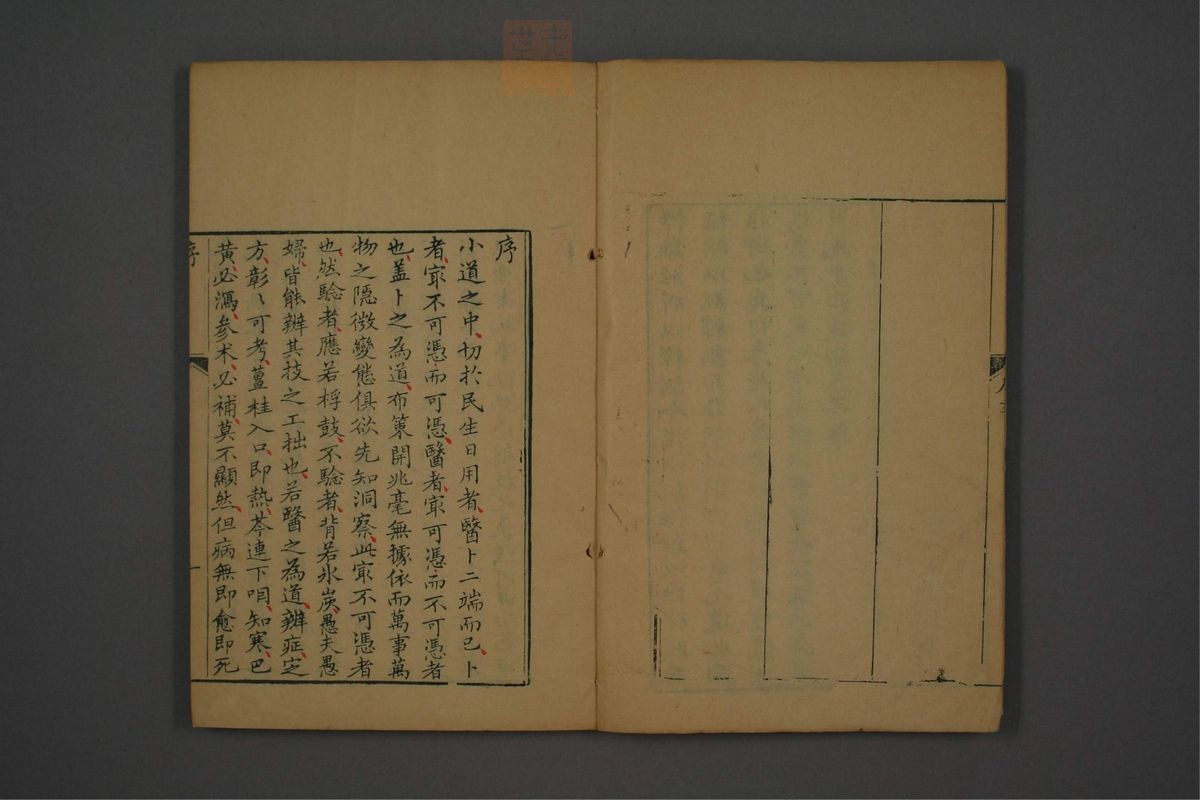 序
小道之中切於民生日用者醫卜二端而已卜
者㝡不可憑而可憑醫者㝡可憑而不可憑者
也盖卜之為道布策開兆毫無據依而萬事萬
物之隱微變態俱欲先知洞察此㝡不可憑者
也然驗者應若桴鼓不驗者背若氷炭愚夫愚
婦皆能辨其技之工拙也若醫之為道辨症定
方彰〻可考薑桂入口即熱芩連下咽知寒巴
黄必瀉参术必補莫不顯然但病無即愈即死
序
一